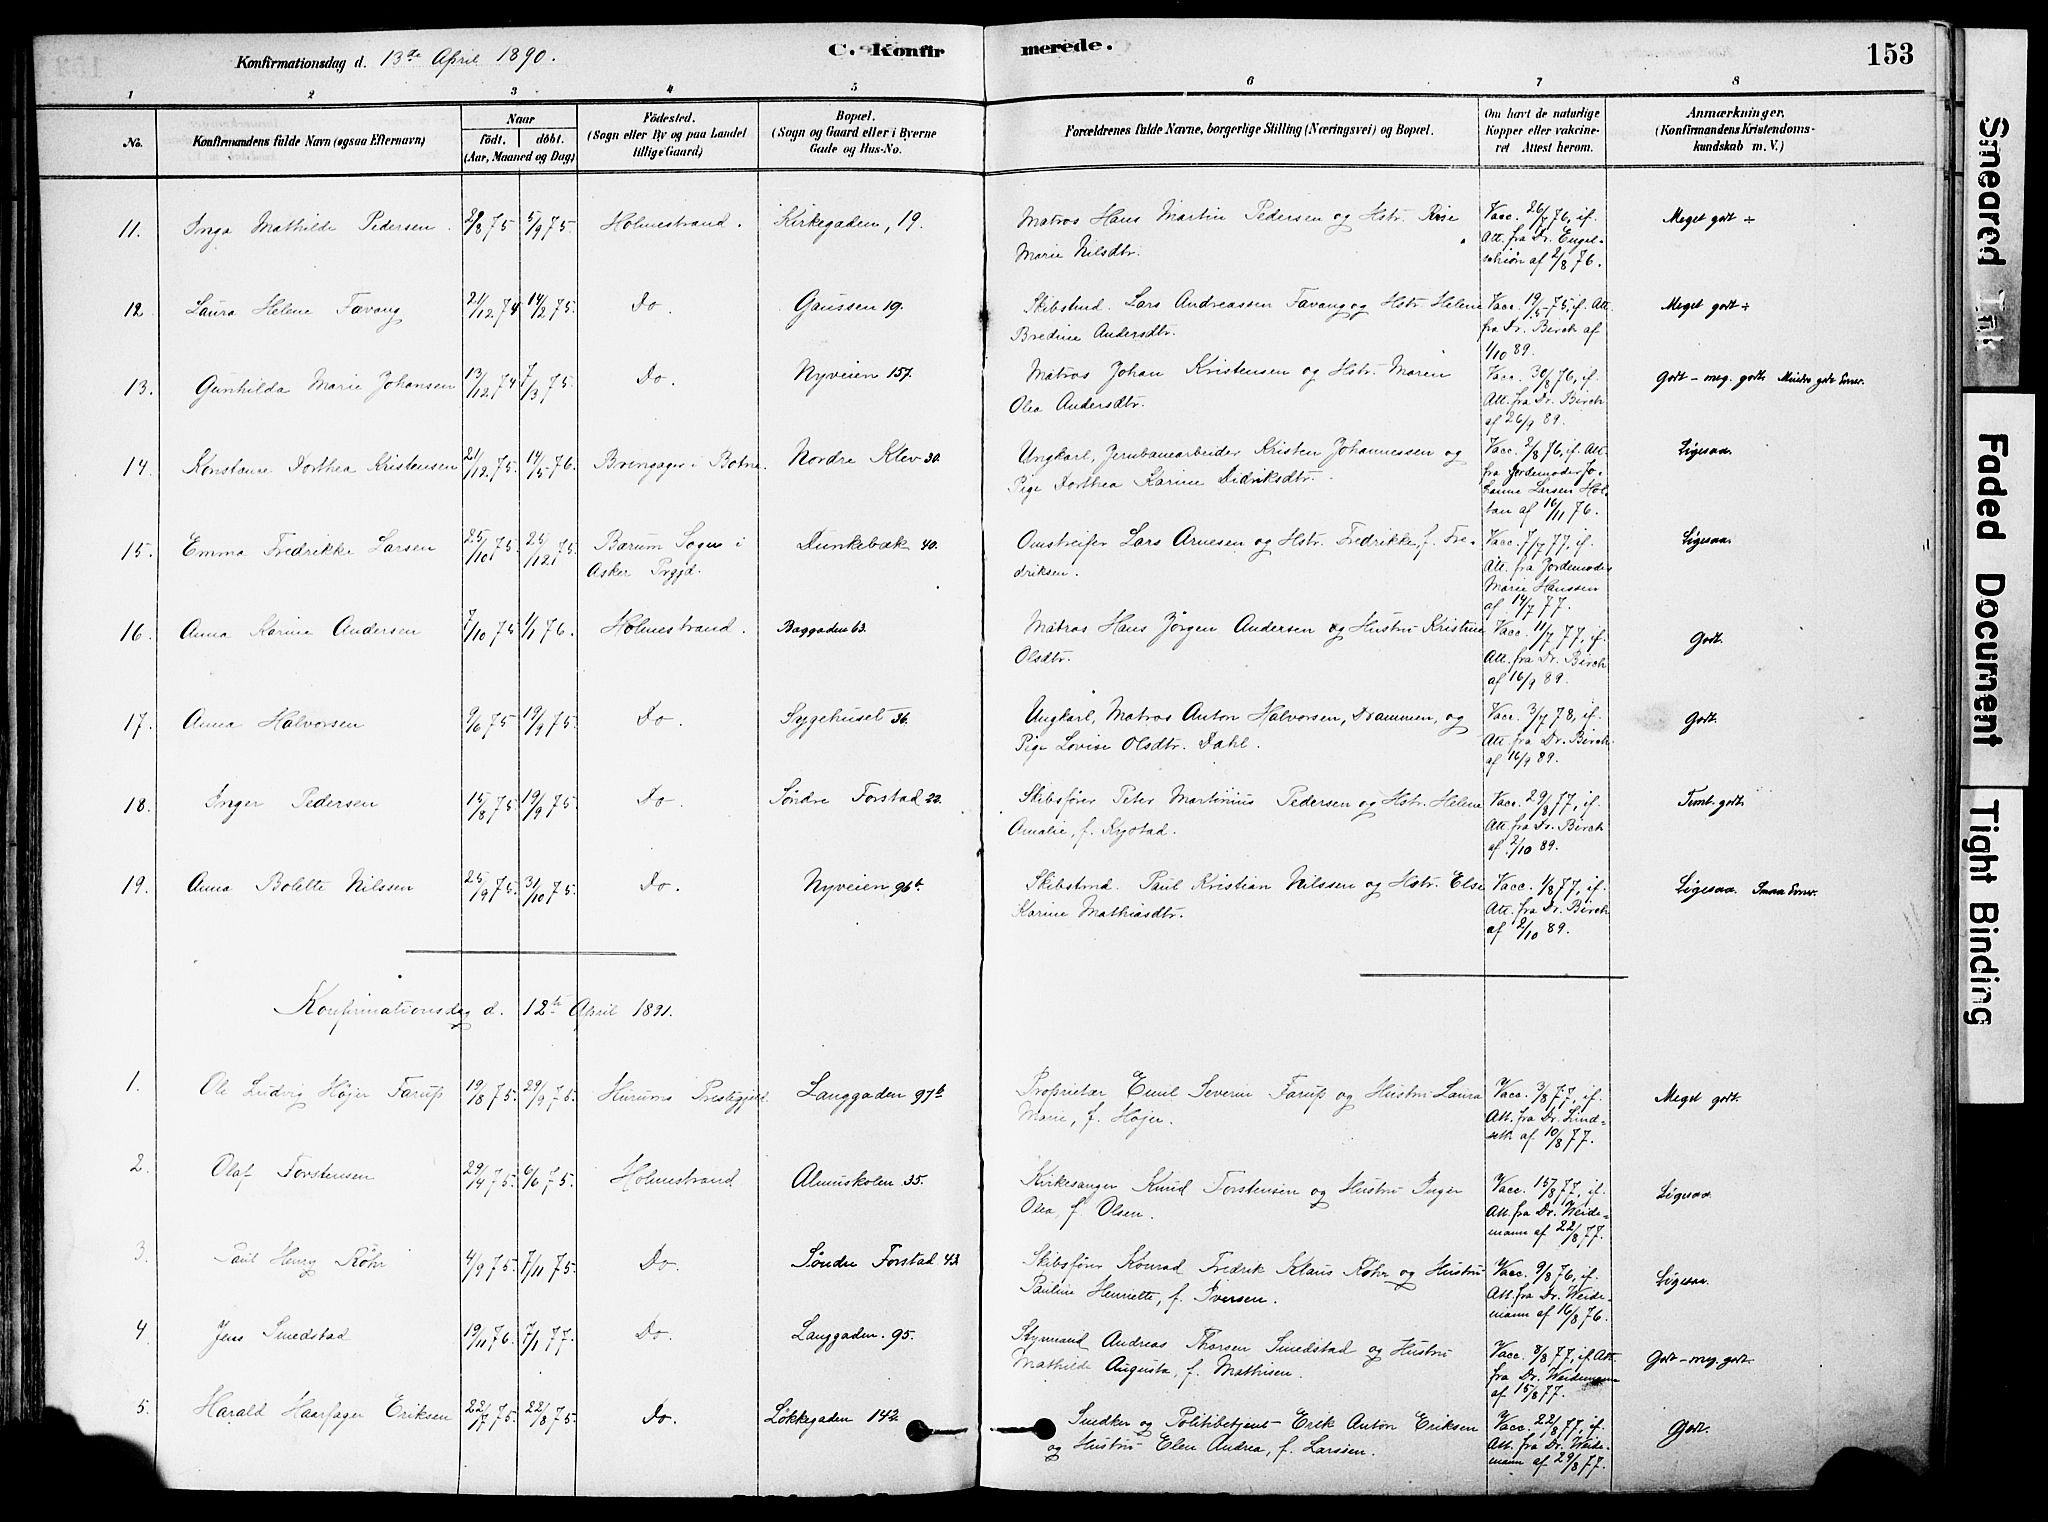 Konfirmationsdag d. 13de April 1890.
C. Konfir
merede.
153
1 2 3 4 5 6 7 8
No.
Konfirmandens fulde Navn (ogsaa Efternavn)
Naar
født. døbt.
(Aar, Maaned og Dag)
Fødested.
(Sogn eller By og paa Landet
tillige Gaard)
Bopæl.
(Sogn og Gaard eller i Byerne
Gade og Hus-No.
Forældrenes fulde Navne, borgerlige Stilling (Næringsvei) og Bopæl.
Om havt de naturlige
Kopper eller vakcine-
ret Attest herom.
Anmærkninger.
(Konfirmandens Kristendoms-
kundskab m. V.)
11. Inga Mathilde Pedersen. 2/8 75 5/9 75 Holmestrand. Kirkegaden, 19. Matros Hans Martin Pedersen og Hstr.
Marie Nilsdtr.
Vacc. 26/7 76, if.
Att. fra Dr. Engel-
schiøn af 2/8 76.
Meget godt ÷
12 Laura Helene Favang 21/12 74 14/2 75. Do. Gaussen 19. Skibstmd. Lars Andreassen Favang og Hstr. Helene
Bredine Andersdtr.
Vacc. 19/5 75, if. Att.
fra Dr. Birch af
1/10 89.
Meget godt ÷
13. Gunhilda Marie Johansen 13/12 74 7/3 75. Do. Nyveien 157. Matros Johan Kristensen og Hstr. Maren
Olea Andersdtr.
Vacc. 30/8 76, if.
Att. fra Dr. Birch
af 26/9 89.
Godt - meg. godt. Mindre godt Evner.
14. Konstanse Dorthea Kristensen 21/12 75. 14/5 76. i Botne. Nordre Klev 30. Ungkarl, Jernbanearbeider Kristen Johannessen og
Pige Dorthea Karine Didriksdtr.
Vacc. 2/8 76, if. Att
fra Jordemoder Jo-
hanne Larsen Hol-
tan af 16/11 76.
Ligesaa.
15. Emma Fredrikke Larsen 25/10 75. 25/12 75. Bærum Sogn i
Asker Prgjd.
Dunkebæk 40. Omstreifer Lars Arnesen og Hstr. Fredrikke, f. Fre-
driksen.
Vacc. 7/7 77, if.
Att. fra Jordemoder
Marie Hanssen
af 14/7 77.
Ligesaa.
16. Anna Karina Andersen 7/10 75 1/1 76. Holmestrand. Baggaden 63. Matros Hans Jørgen Andersen og Hustru Kristine
Olsdtr.
Vacc. 11/7 77, if.
Att. fra Dr. Birch
af 16/9 89.
Godt.
17. Anna Halvorsen 9/6 75. 19/9 75. Do. Sygehuset 36. Ungkarl, Matros Anton Halvorsen, Drammen, og
Pige Lovise Olsdtr. Dahl.
Vacc. 3/7 78, if.
Att. fra Dr. Birch
af 16/9 89.
Godt.
18. Inger Pedersen 15/8 75. 19/9 75. Do. Søndre Torstad 22. Skibsfører Peter Martinius Pedersen og Hstr. Helene
Amalie, f.
Vacc. 29/8 77, if.
Att. fra Dr. Birch
af 2/10 89.
Temt. godt.
19. Anna Bolette Nilssen 25/9 75. 31/10 75. Do. Nyveien 96b. Skibstmd. Paul Kristian Nilssen og Hstr. Else
Karine Mathiasdtr.
Vacc. 1/8 77, if.
Att. fra Dr. Birch
af 2/10 89.
Ligesaa. Smaa Evner.
Konfirmationsdag d. 12te April 1891.
1. Ole Ludvig Høyer Farup 19/8 75. 29/9 75. Hurums Prestegjeld Langgaden 97b Proprietær Emil Severin Farup og Hustru Laura
Marie, f. Høyer.
Vacc. 3/8 77, if.
Att. fra Dr. Lind-
seth af 10/8 77.
Meget godt.
2. Olaf Torstensen 29/4 75. 6/6 75. Holmestrand Almuskolen 35. Kirkesanger Knud Torstensen og Hustru Inger
Olea, f. Olsen.
Vacc. 15/8 77, if.
Att. fra Dr. Weide-
mann af 22/8 77.
Ligesaa.
3. Paul Henry Röhr 4/9 75. 7/11 75. Do. Søndre Torstad 43. Skibsfører Konrad Fredrik Klaus Röhr og Hustru
Pauline Henriette, f. Iversen.
Vacc. 9/8 76, if.
Att. fra Dr. Weide-
mann af 16/8 76.
Ligesaa.
4 Jens Smedstad 19/11 76. 7/1 77. Do. Langgaden. 95. Styrmand Andreas Thorsen Smedstad og Hustru
Mathilde Augusta, f. Mathisen.
Vacc. 8/8 77, if. Att.
fra Dr. Weidemann
af 15/8 77.
Godt - meg. godt.
5. Harald Haarfager Eriksen 22/7 75. 22/8 75. Do. Løkkegaden 142. Snedker og Politibetjent Erik Anton Eriksen
og Hustru Elen Andrea, f. Larssen.
Vacc. 22/8 77, if.
Att. fra Dr. Weide-
mann af 29/8 77.
Godt.
Smeared Ink
Faded Document
Tight Binding